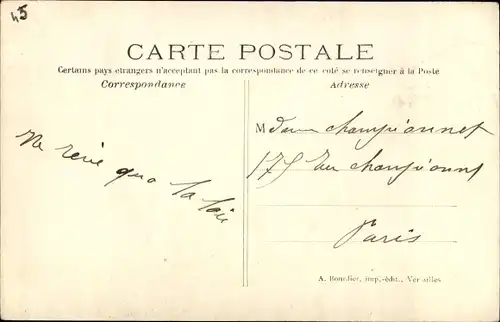 45
CARTE POSTALE
Certains pays etrangers n'acceptant pas la correspondance de ce coté se renseigner à la Poste
Correspondance
Adresse
Madame Championnet
175 Rue Championnet
Paris
A. Bourdier, imp.-édit., Versailles